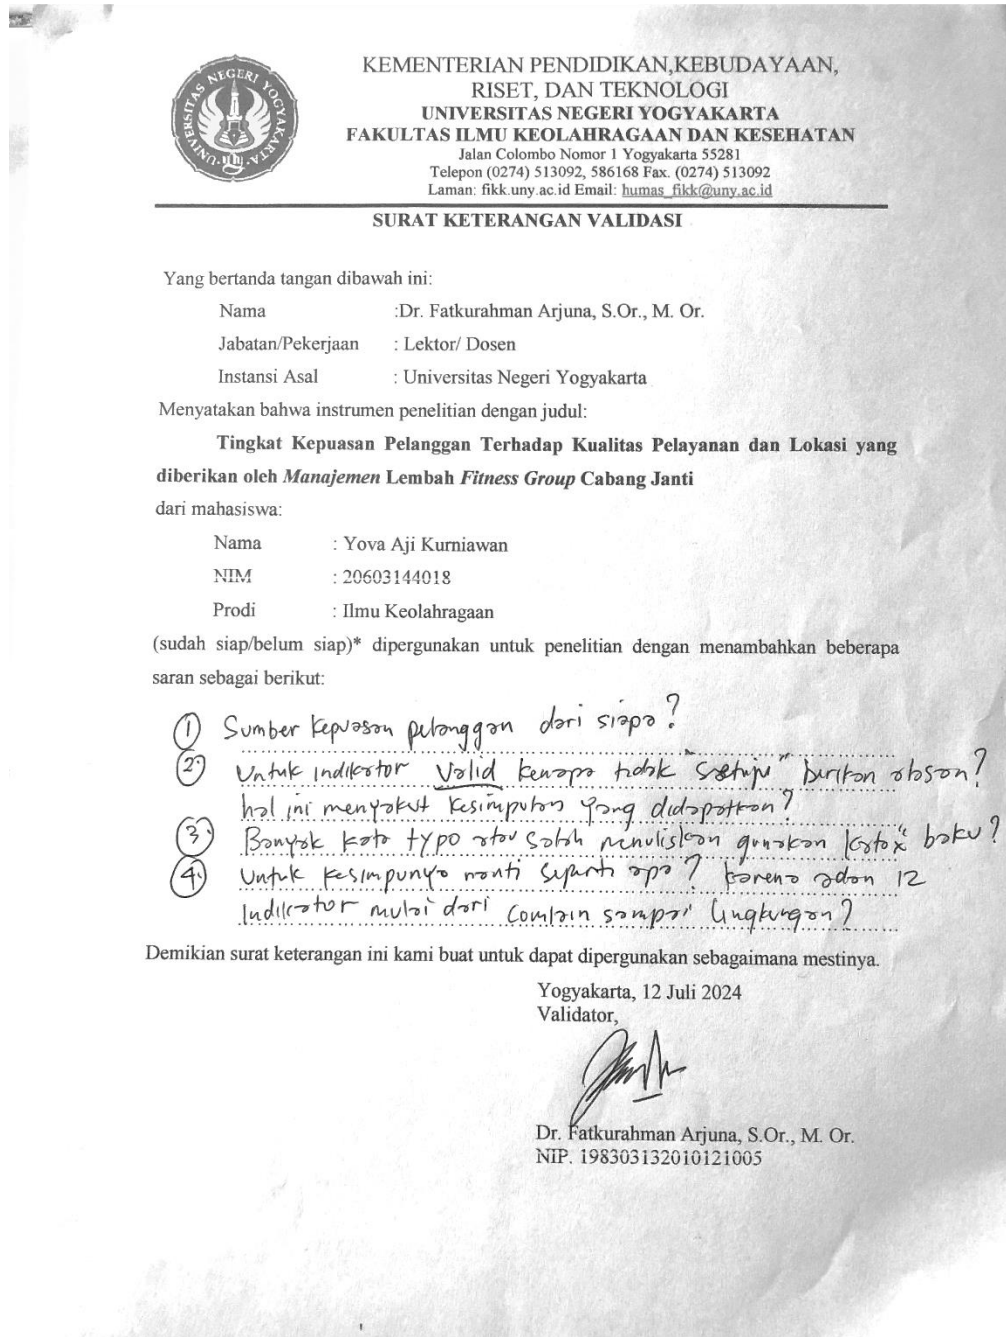 UNIVERSITAS NEGERI YOGYAKARTA
KEMENTERIAN PENDIDIKAN,KEBUDAYAAN,
RISET, DAN TEKNOLOGI
UNIVERSITAS NEGERI YOGYAKARTA
FAKULTAS ILMU KEOLAHRAGAAN DAN KESEHATAN
Jalan Colombo Nomor 1 Yogyakarta 55281
Telepon (0274) 513092, 586168 Fax. (0274) 513092
Laman: fikk.uny.ac.id Email: humas_fikk@uny.ac.id
SURAT KETERANGAN VALIDASI
Yang bertanda tangan dibawah ini:
Nama :Dr. Fatkurahman Arjuna, S.Or., M. Or.
Jabatan/Pekerjaan : Lektor/ Dosen
Instansi Asal : Universitas Negeri Yogyakarta
Menyatakan bahwa instrumen penelitian dengan judul:
Tingkat Kepuasan Pelanggan Terhadap Kualitas Pelayanan dan Lokasi yang
diberikan oleh Manajemen Lembah Fitness Group Cabang Janti
dari mahasiswa:
Nama : Yova Aji Kurniawan
NIM : 20603144018
Prodi : Ilmu Keolahragaan
(sudah siap/belum siap)* dipergunakan untuk penelitian dengan menambahkan beberapa
saran sebagai berikut:
1 Sumber kepuasan pelanggan dari siapa?
2 Untuk indikator Valid kenapa tidak "setuju" berikan alasan?
hal ini menyakut kesimpulan yang didapatkan?
3 Banyak kata typo atau salah menuliskan gunakan kata" baku?
4. Untuk kesimpunya nanti seperti apa? karena adan 12
Indikator mulai dari complain sampai lingkungan?
Demikian surat keterangan ini kami buat untuk dapat dipergunakan sebagaimana mestinya.
Yogyakarta, 12 Juli 2024
Validator,
Dr. Fatkurahman Arjuna, S.Or., M. Or.
NIP. 198303132010121005